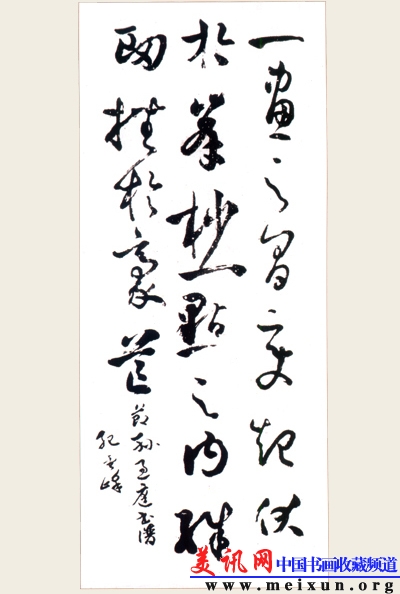 一畫之間變起伏
於峯杪一點之内殊
衄挫於豪芒
節孫過庭書譜
美讯网 中国书画收藏频道
www.meixun.org